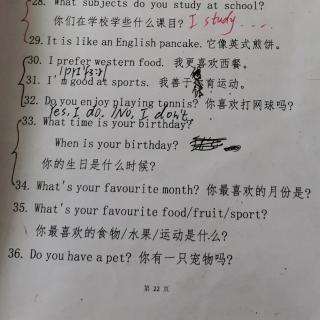 28. What subjects do you study at school?
你们在学校学些什么课目? I study ....
29. It is like an English pancake. 它像英式煎饼。
30. I prefer western food. 我更喜欢西餐。
31. I'm good at sports. 我善于体育运动。
32. Do you enjoy playing tennis? 你喜欢打网球吗?
Yes, I do. /No, I don't.
33. What time is your birthday?
When is your birthday?
你的生日是什么时候?
34. What's your favourite month? 你最喜欢的月份是?
35. What's your favourite food/fruit/sport?
你最喜欢的食物/水果/运动是什么?
36. Do you have a pet? 你有一只宠物吗?
第 22 页